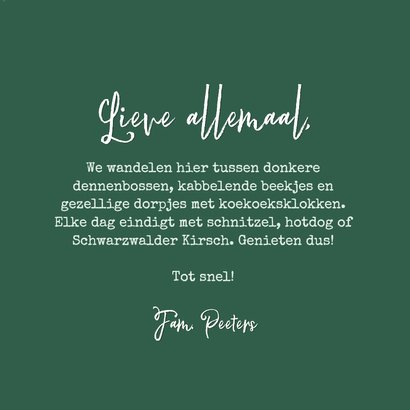 Lieve allemaal,
We wandelen hier tussen donkere
dennenbossen, kabbelende beekjes en
gezellige dorpjes met koekoeksklokken.
Elke dag eindigt met schnitzel, hotdog of
Schwarzwalder Kirsch. Genieten dus!
Tot snel!
Fam. Peeters